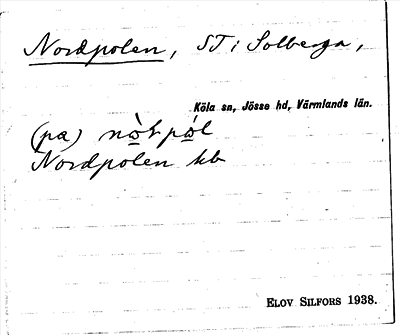 Nordpolen, ST i Solberga,
Köla sn, Jösse hd, Värmlands län.
(pa) nòṯpól
Nordpolen kb
ELOV SILFORS 1938.